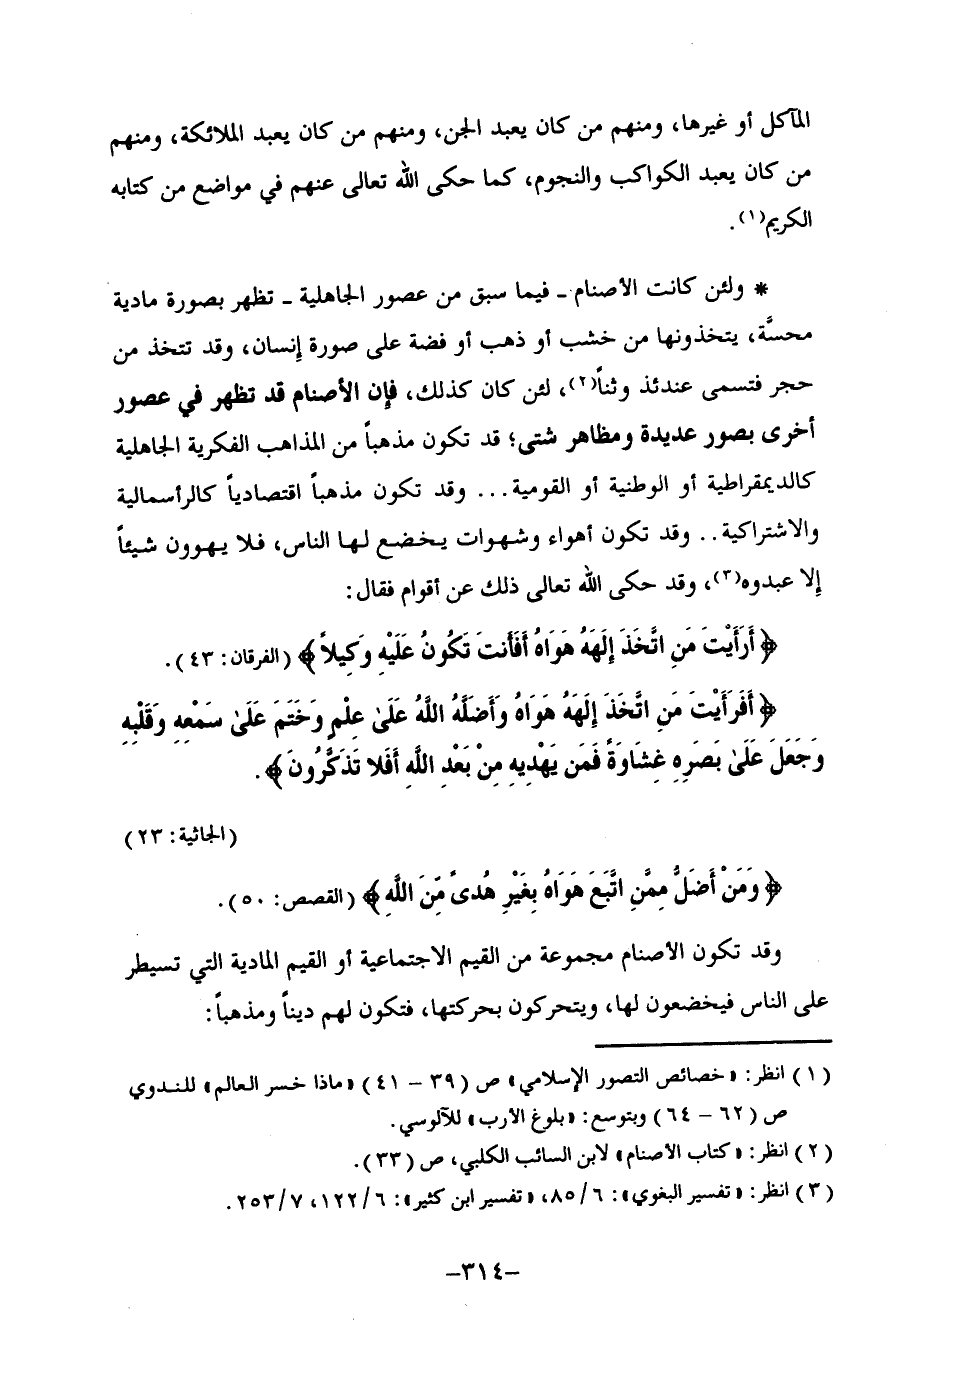 المآكل أو غيرها، ومنهم من كان يعبد الجن، ومنهم من كان يعبد الملائكة، ومنهم
من كان يعبد الكواكب والنجوم، كما حكى الله تعالى عنهم في مواضع من كتابه
الكريم(١).
* ولئن كانت الأصنام ـ فيما سبق من عصور الجاهلية ـ تظهر بصورة مادية
محسَّة، يتخذونها من خشب أو ذهب أو فضة على صورة إنسان، وقد تتخذ من
حجر فتسمى عندئذ وثناً(٢)، لئن كان كذلك، فإن الأصنام قد تظهر في عصور
أخرى بصور عديدة ومظاهر شتى؛ قد تكون مذهباً من المذاهب الفكرية الجاهلية
كالديمقراطية أو الوطنية أو القومية... وقد تكون مذهباً اقتصادياً كالرأسمالية
والاشتراكية.. وقد تكون أهواء وشهوات يخضع لها الناس، فلا يهوون شيئاً
إلا عبدوه(٣)، وقد حكى الله تعالى ذلك عن أقوام فقال:
﴿أَرَأَيْتَ مَنِ اتَّخَذَ إِلَهَهُ هَوَاهُ أَفَأَنتَ تَكُونُ عَلَيْهِ وَكِيلاً﴾ (الفرقان: ٤٣).
﴿أَفَرَأَيْتَ مَنِ اتَّخَذَ إِلَهَهُ هَوَاهُ وَأَضَلَّهُ اللَّهُ عَلَىٰ عِلْمٍ وَخَتَمَ عَلَىٰ سَمْعِهِ وَقَلْبِهِ
وَجَعَلَ عَلَىٰ بَصَرِهِ غِشَاوَةً فَمَن يَهْدِيهِ مِنْ بَعْدِ اللَّهِ أَفَلا تَذَكَّرُونَ﴾.
(الجاثية: ٢٣)
﴿وَمَنْ أَضَلُّ مِمَّنِ اتَّبَعَ هَوَاهُ بِغَيْرِ هُدىً مِّنَ اللَّهِ﴾ (القصص: ٥٠).
وقد تكون الأصنام مجموعة من القيم الاجتماعية أو القيم المادية التي تسيطر
على الناس فيخضعون لها، ويتحركون بحركتها، فتكون لهم ديناً ومذهباً:
(١) انظر: «خصائص التصور الإسلامي» ص (٣٩ – ٤١) «ماذا خسر العالم» للندوي
ص (٦٢ – ٦٤) وبتوسع: «بلوغ الأرب» للآلوسي.
(٢) انظر: «كتاب الأصنام» لابن السائب الكلبي، ص (٣٣).
(٣) انظر: «تفسير البغوي»: ٨٥/٦، «تفسير ابن كثير»: ١٢٢/٦، ٢٥٣/٧.
–٣١٤–